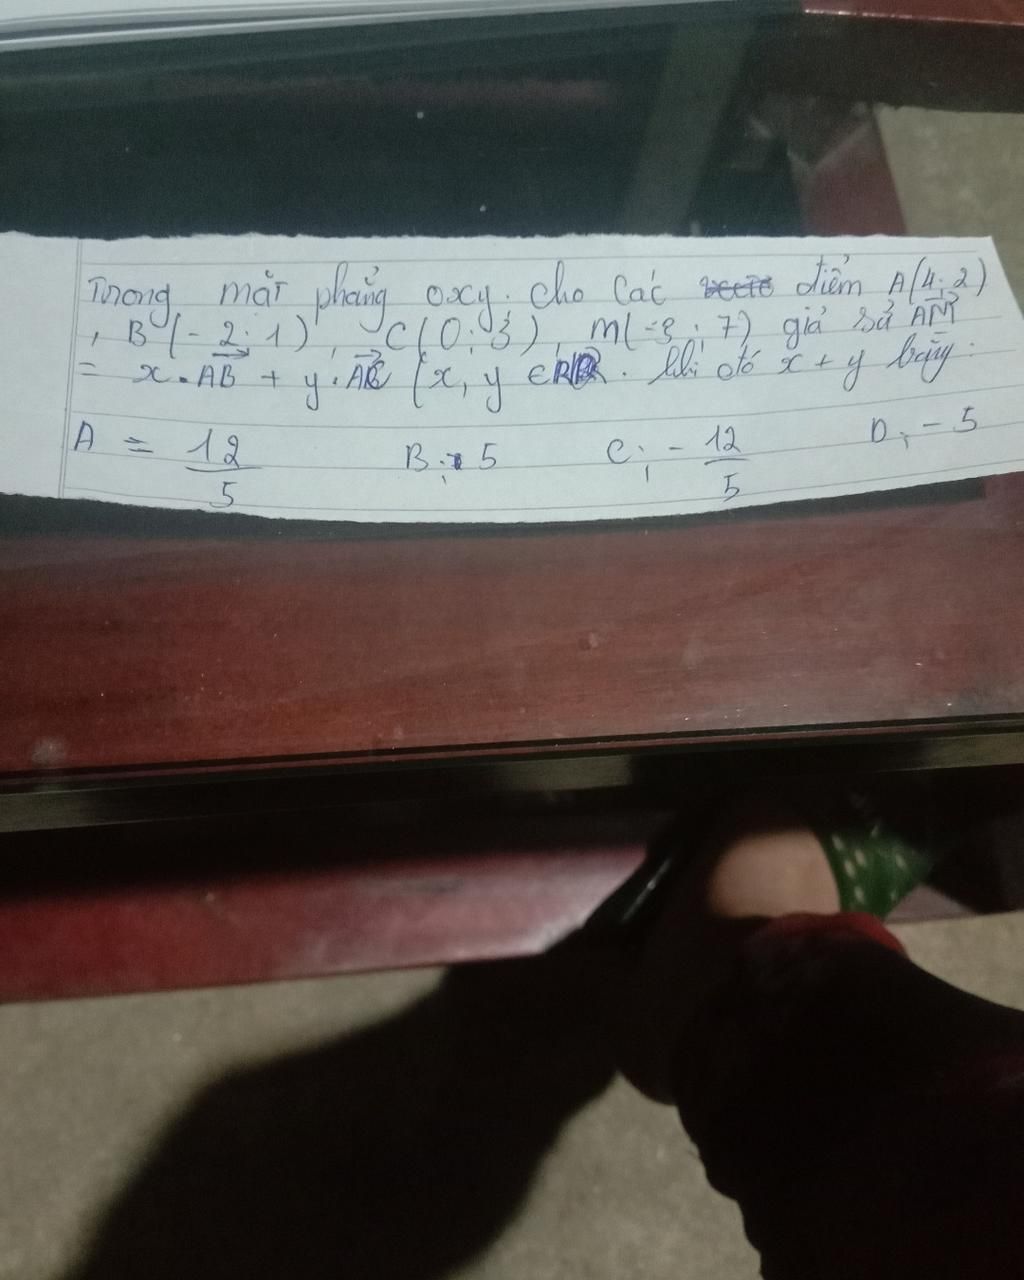 Trong mặt phẳng oxy. cho các điểm A(4; 2)
, B(-2; 1), C(0; 3), M(-3; 7) giả sử AM
= x.AB + y.AC (x, y ∈ R. khi đó x + y bằng:
A = 12/5 B; 5 C; - 12/5 D; - 5